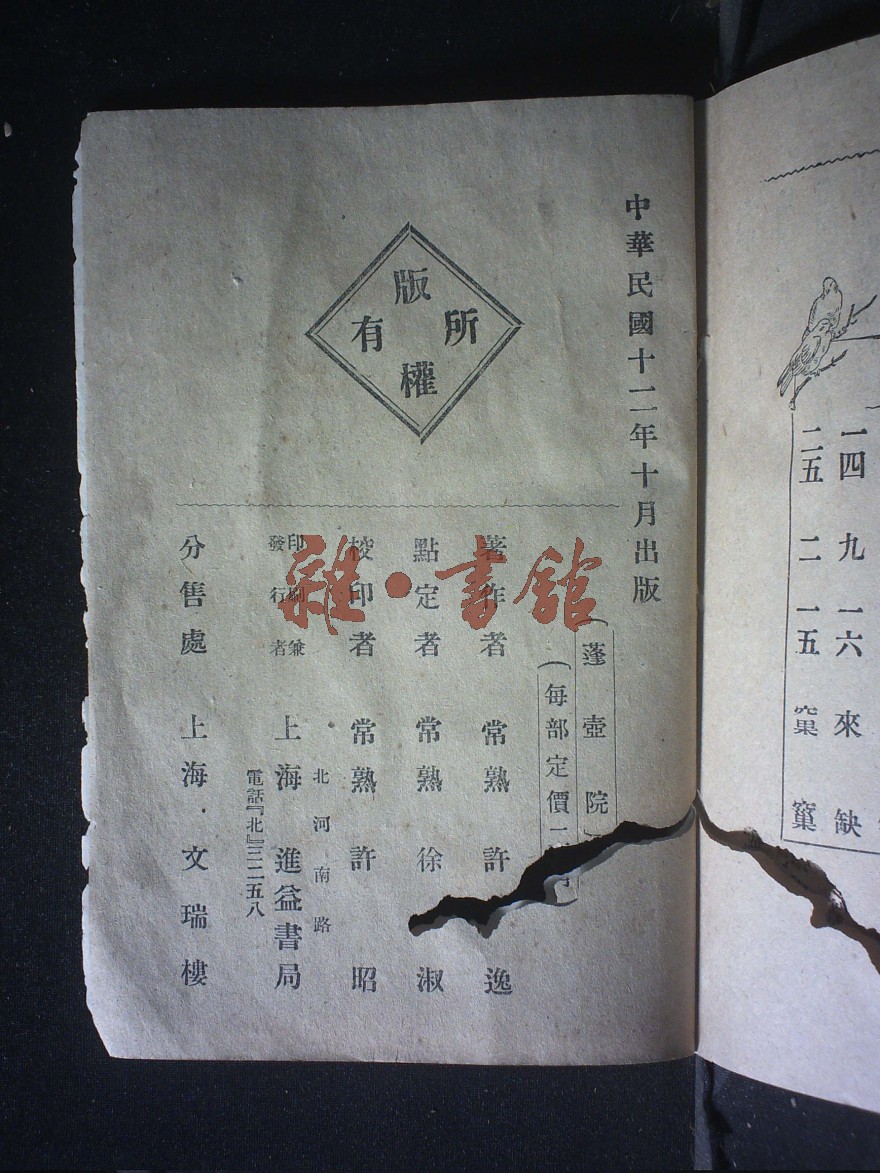 一四 九 一六 來 缺
二五 二 一五 窠
中華民國十二年十月出版
版權所有
(蓬壺院
(每部定價
著作者 常熟 許 逸
點定者 常熟 徐 淑
校印者 常熟 許 昭
印刷兼發行者 上海 進益書局
北河南路
電話『北』三二五八
分售處 上海·文瑞樓
雜·書館